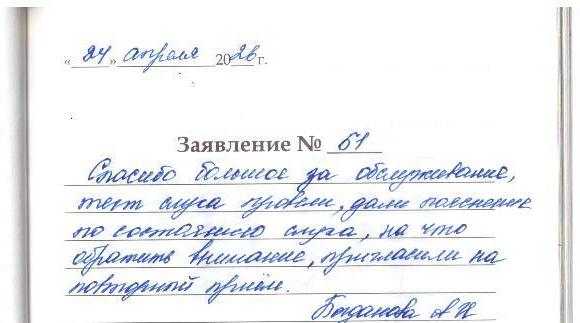 « 24 » апреля 2026 г.
Заявление № 61
Спасибо большое за обслуживание,
тест слуха провели, дали пояснение
по состоянию слуха, на что
обратить внимание, пригласили на
повторный приём.
Богданова А И